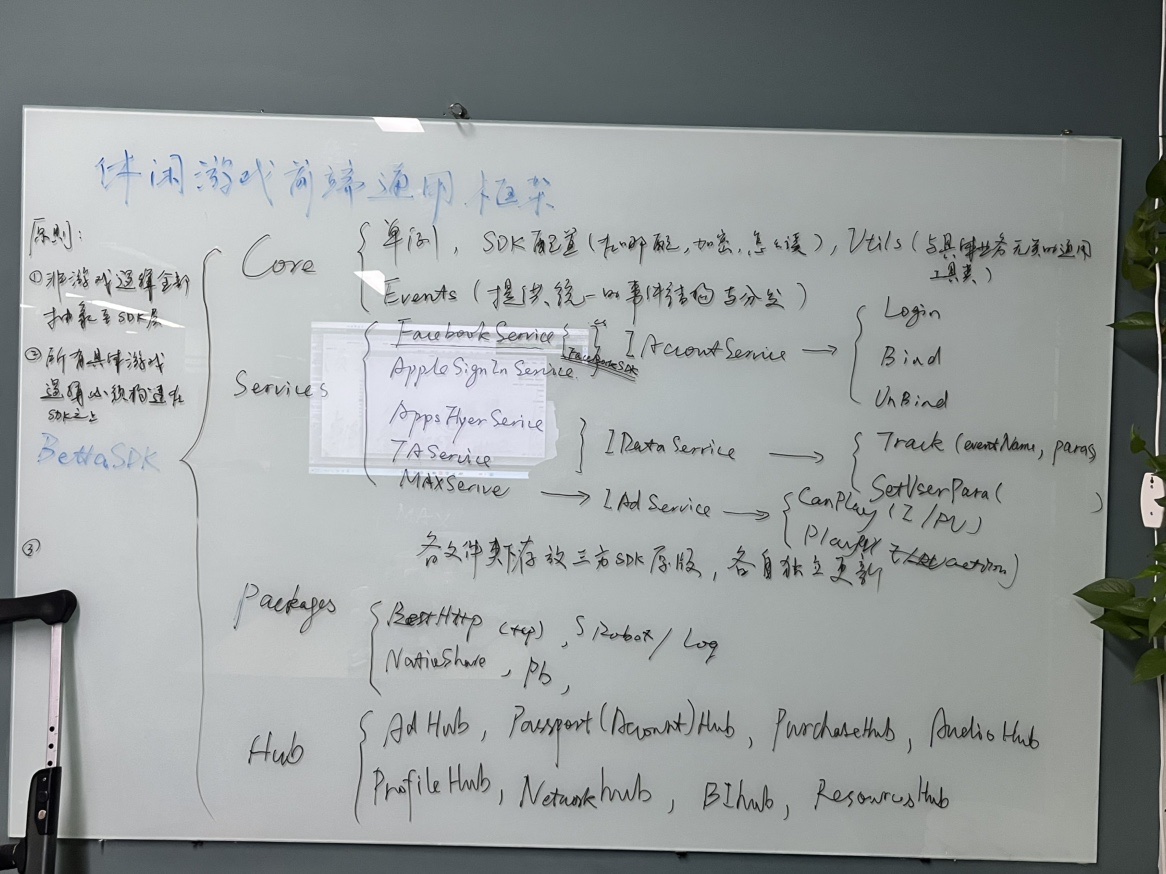 休闲游戏前端通用框架
原则:
①非游戏逻辑全部
抽象至SDK层
②所有具体游戏
逻辑必须构建在
SDK之上
BettaSDK
③
Core
单例, SDK配置(在哪配,加密,怎么读), Utils(与具体业务无关的通用
工具类)
Events (提供统一的事件结构与分发)
Services
FacebookService
FacebookSDK
AppleSignInService
IAccountService →
Login
Bind
UnBind
AppsFlyerService
TAService
IDataService →
Track (eventName, paras
SetUserPara( )
MAXSerive → IAdService →
CanPlay (I/RV)
Play( action)
各文件夹下存放三方SDK原版, 各自独立更新
Packages
BestHttp (tcp), SRobot/Log
NativeShare, Pb,
Hub
AdHub, Passport(Account)Hub, PurchaseHub, AudioHub
ProfileHub, Networkhub, BIhub, ResourcesHub